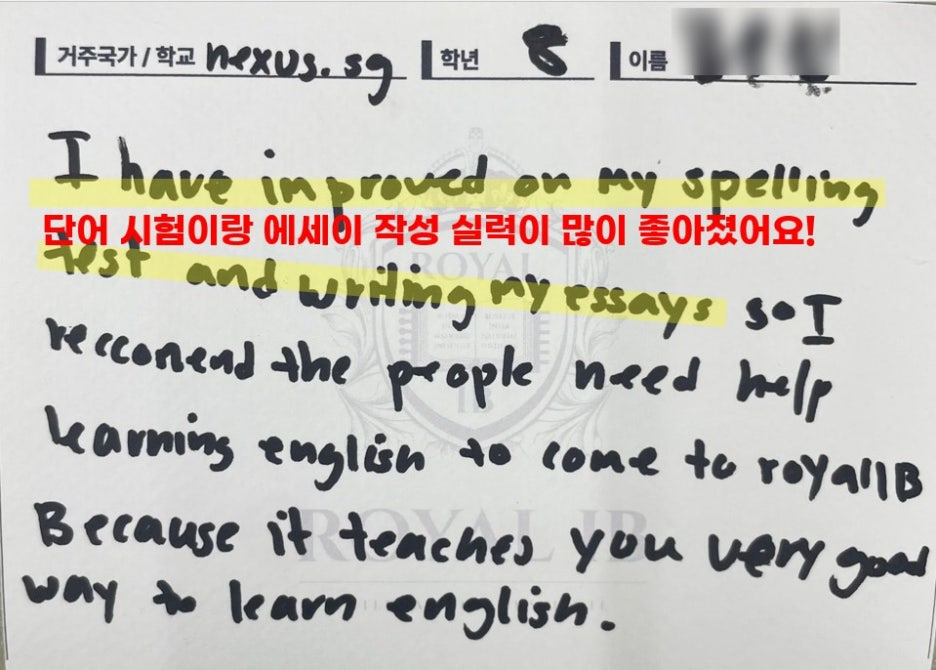 거주국가 / 학교 nexus.sg 학년 8 이름
I have improved on my spelling
단어 시험이랑 에세이 작성 실력이 많이 좋아졌어요!
test and writing my essays so I
reccomend the people need help
learning english to come to royal IB
Because it teaches you very good
way to learn english.
ROYAL
IB
ROYAL IB